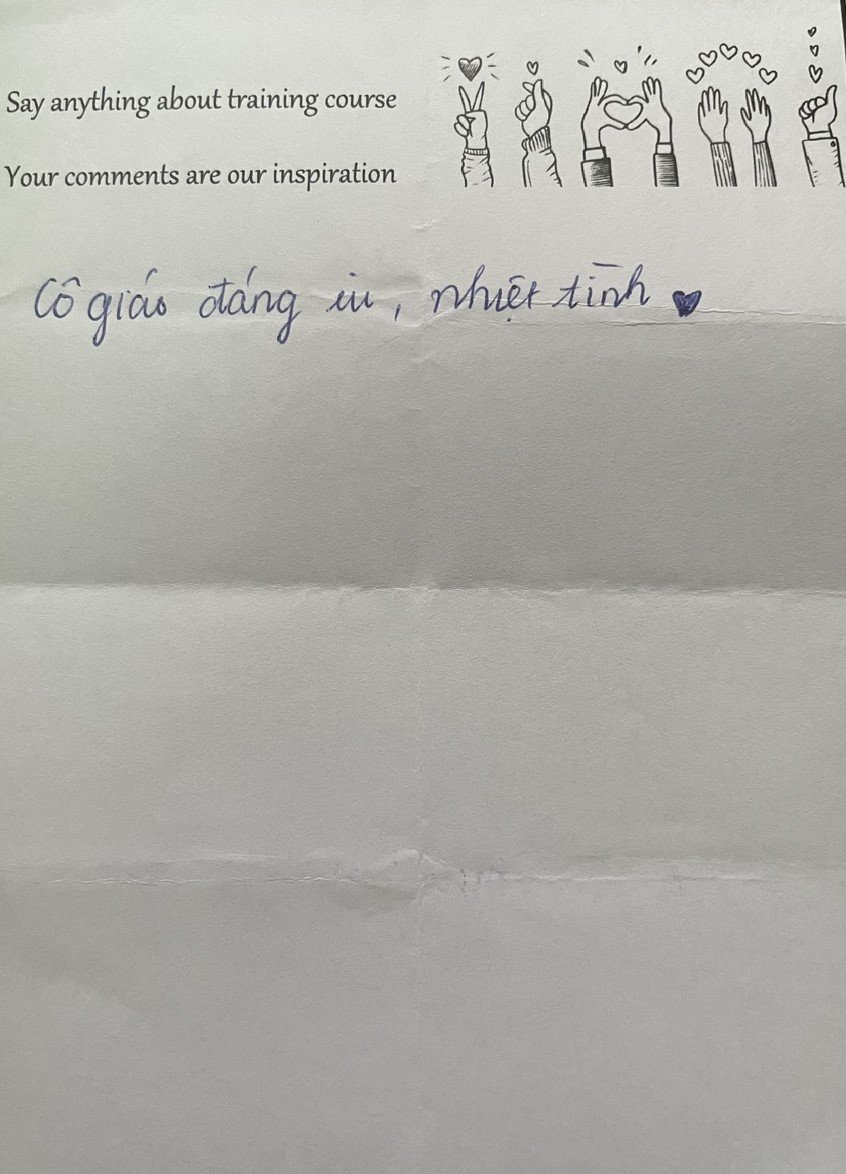 Say anything about training course
Your comments are our inspiration
Cô giáo đáng iu, nhiệt tình